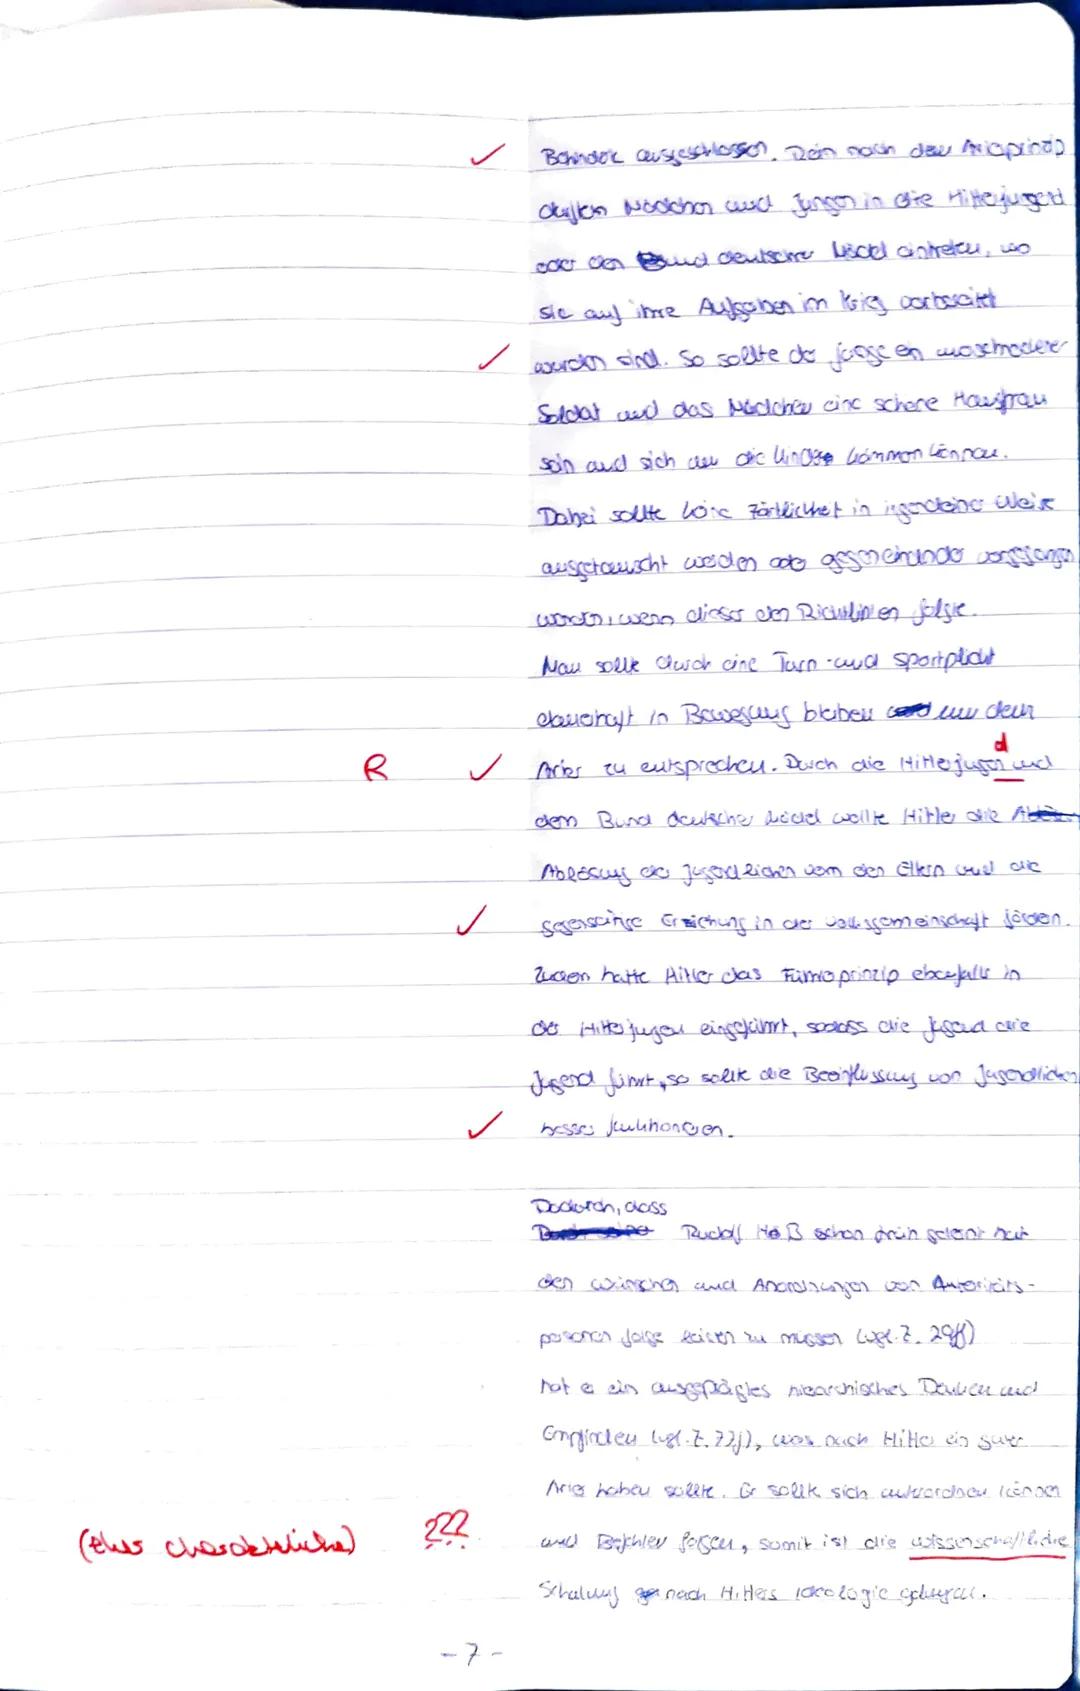 Behinderte ausgeschlossen. Rein nach dem Arierprinzip
durften Mädchen und Jungen in die Hitlerjugend
oder den Bund deutscher Mädel eintreten, wo
sie auf ihre Aufgaben im Krieg vorbereitet
worden sind. So sollte der Junge ein
Soldat und das Mädchen eine Hausfrau
sein und sich um die Kinder kümmern können.
Dabei sollte keine Zärtlichkeit in irgendeiner Weise
ausgetauscht werden oder gegeneinander vorgegangen
werden, wenn dieser den Richtlinien folgte.
Man sollte durch eine Turn- und Sportpflicht
dauerhaft in Bewegung bleiben um dem
R Arier zu entsprechen. Durch die Hitlerjugend und
dem Bund deutscher Mädel wollte Hitler die
Ablösung der Jugendlichen von den Eltern und die
gegenseitige Erziehung in der Volksgemeinschaft fördern.
Zudem hatte Hitler das Führerprinzip ebenfalls in
der Hitlerjugend eingeführt, sodass die Jugend die
Jugend führt, so sollte die Beeinflussung von Jugendlichen
besser funktionieren.
Dadurch, dass
Rudolf Höß schon früh gelernt hat
den Wünschen und Anordnungen von Autoritäts-
personen folge leisten zu müssen (vgl. Z. 29ff)
hat er ein ausgeprägtes hierarchisches Denken und
Empfinden (vgl. Z. 72f), was nach Hitler ein guter
Arier haben sollte. Er sollte sich unterordnen können
(eher charakterliche) ??? und Befehlen folgen, somit ist die wissenschaftliche
Schulung nach Hitlers Ideologie gelungen.
- 7 -